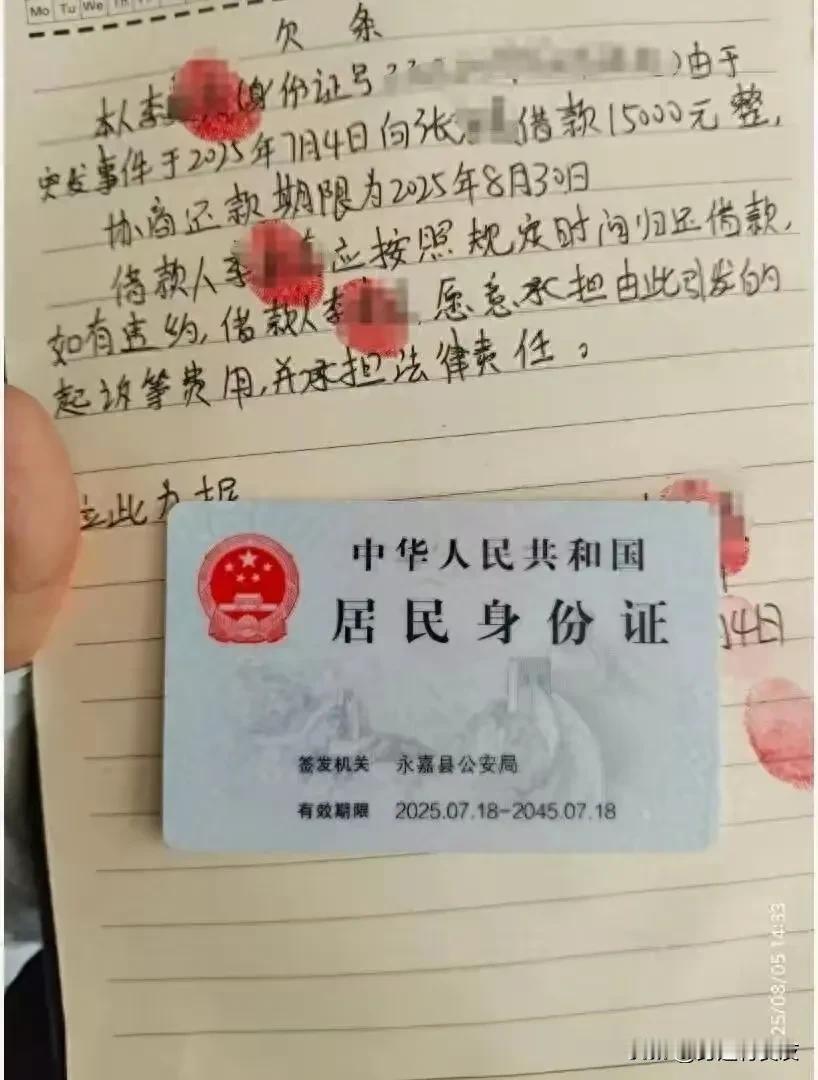 Mo Tu We Th
欠条
本人李 (身份证号 )由于
突发事件于2025年7月4日向张 借款15000元整,
协商还款期限为2025年8月30日
借款人李 应按照规定时间归还借款,
如有违约,借款人李 愿意承担由此引发的
起诉等费用,并承担法律责任。
立此为据
中华人民共和国
居民身份证
14日
签发机关 永嘉县公安局
有效期限 2025.07.18-2045.07.18
25/08/05 14:33